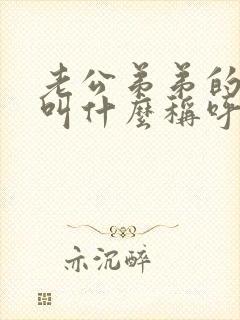 老公弟弟的
叫什麼稱呼
亦沉醉